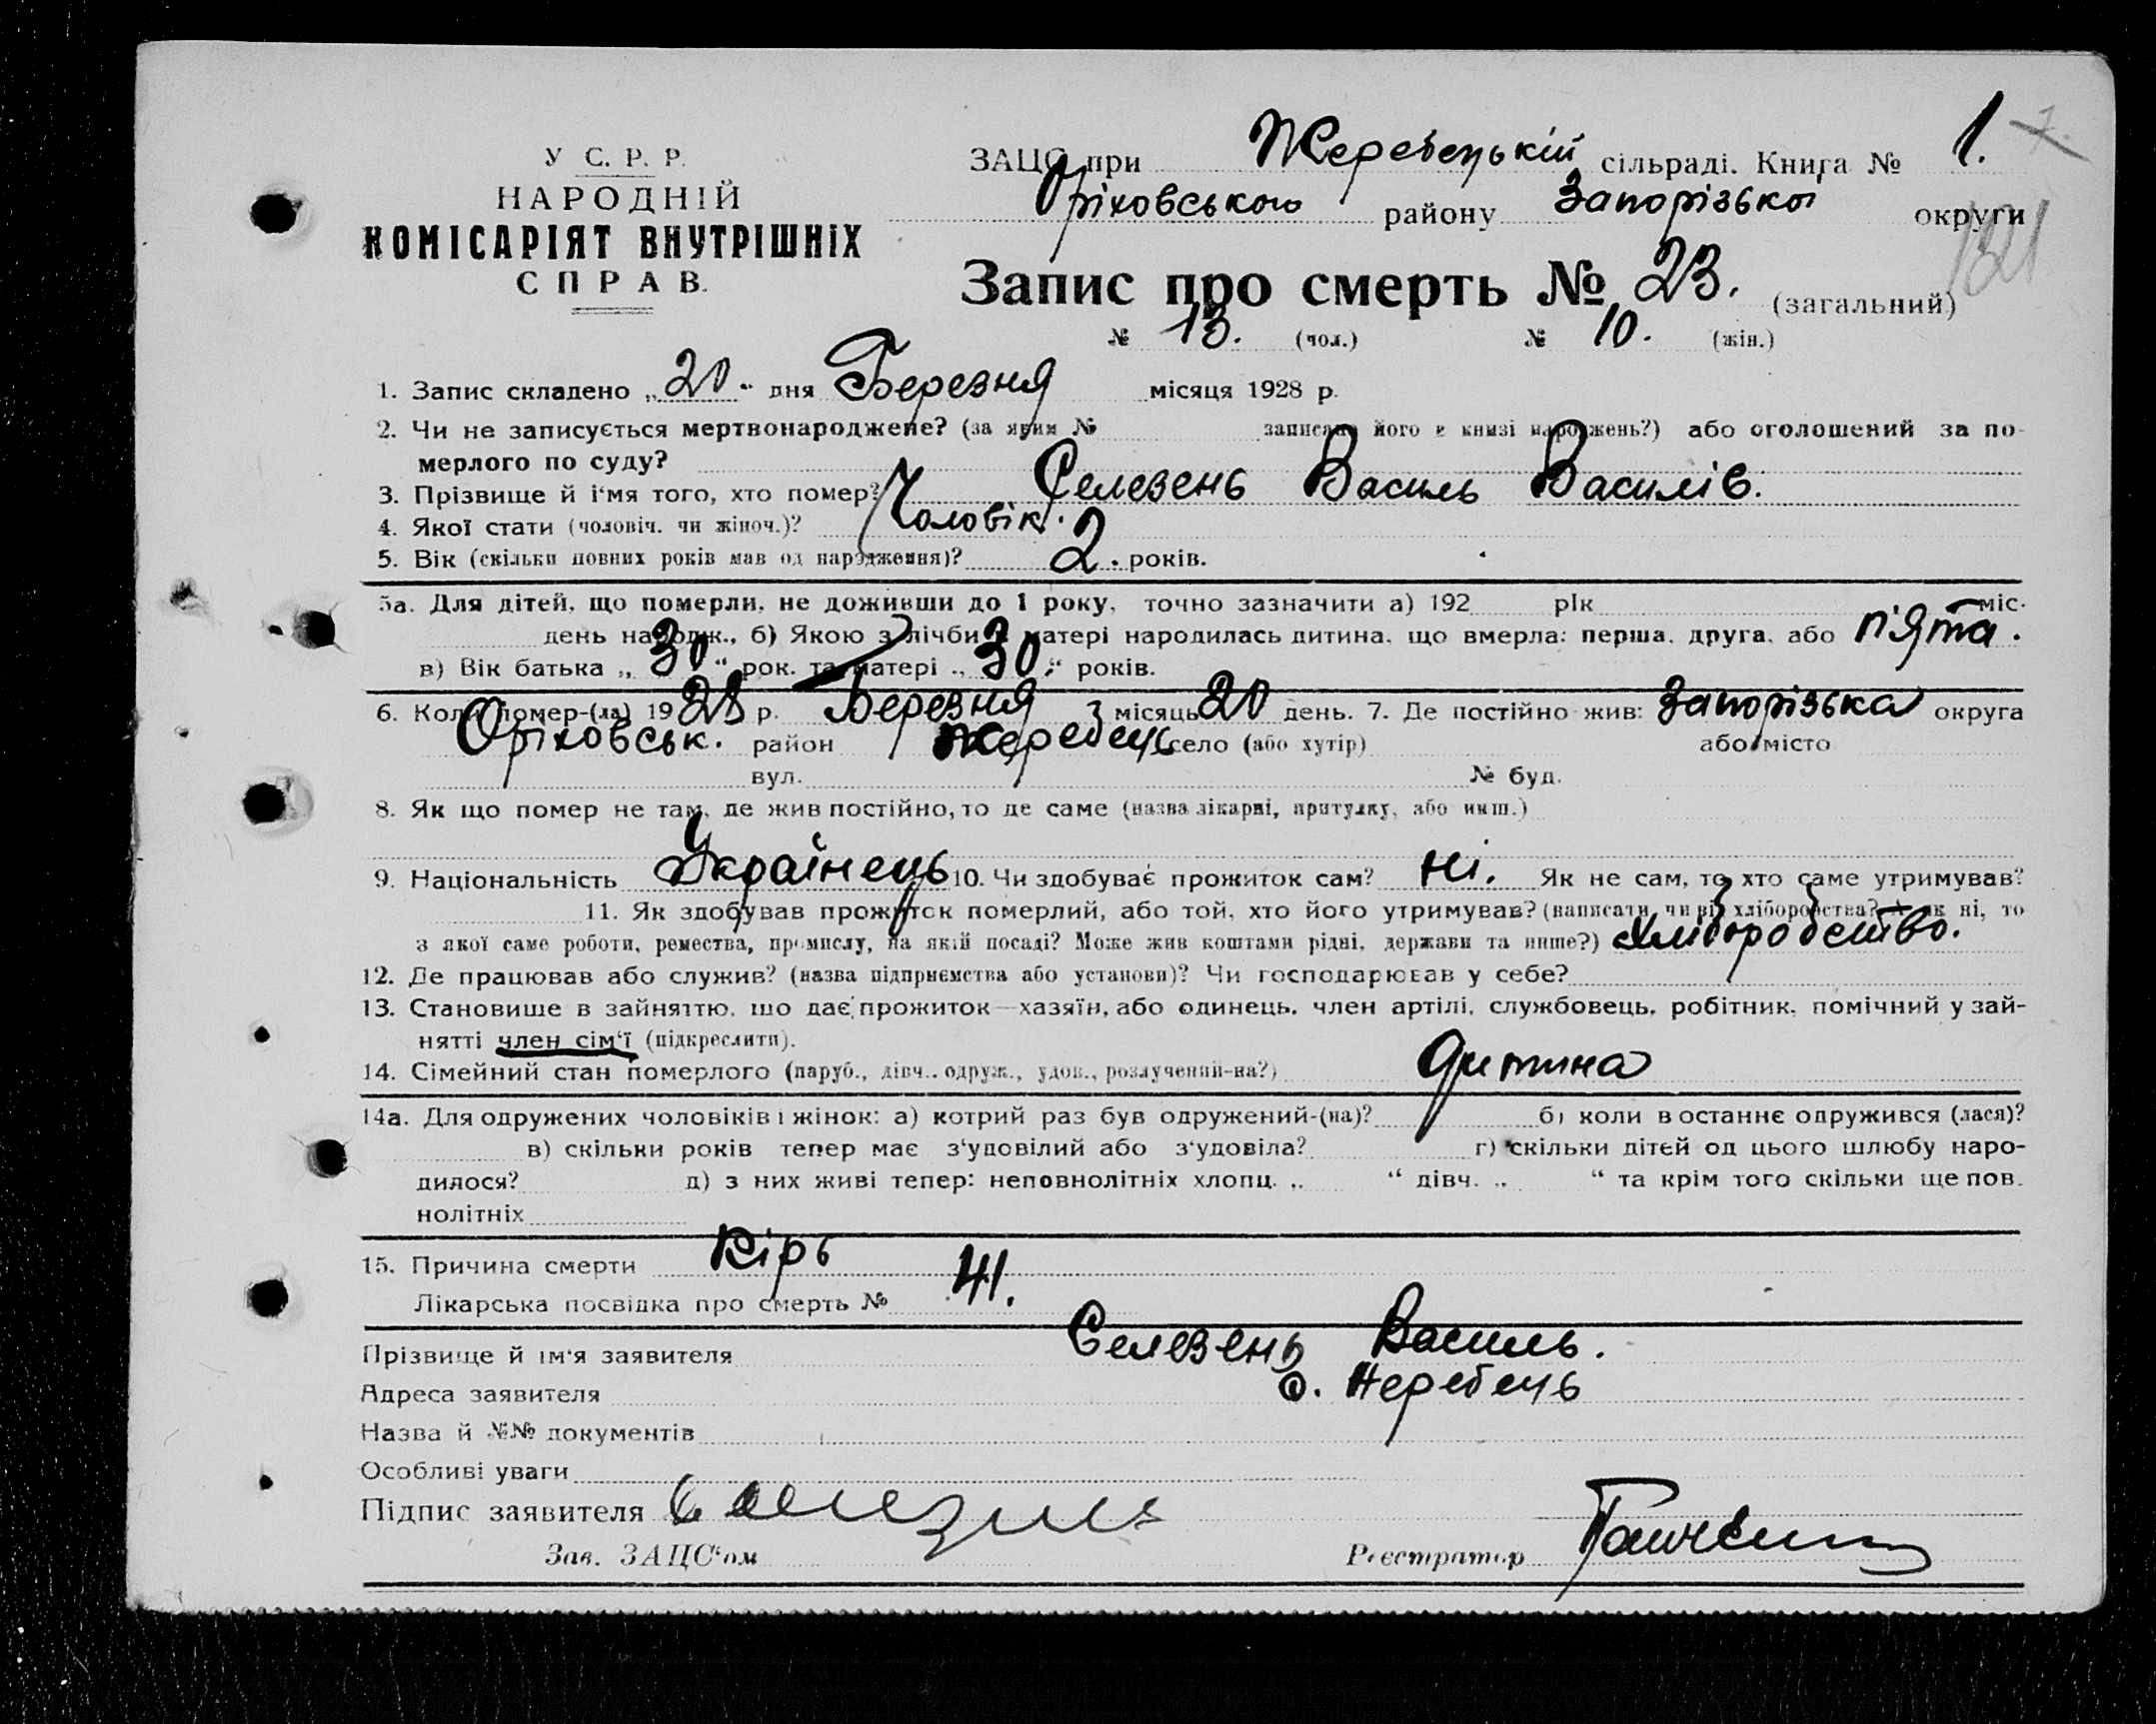 У С. Р. Р.
НАРОДНІЙ
КОМІСАРІЯТ ВНУТРІШНІХ
СПРАВ.
ЗАЦС при Жеребецькій сільраді. Книга № 1.
Оріховського району Запорізької округи
121
Запис про смерть № 23. (загальний)
№ 13. (чол.) № 10. (жін.)
1. Запис складено „20“ дня Березня місяця 1928 р.
2. Чи не записується мертвонароджене? (за яким № записано його в книзі народжень?) або оголошений за по-
мерлого по суду?
3. Прізвище й і'мя того, хто помер? Селезень Василь Василів.
4. Якої стати (чоловіч. чи жіноч.)? Чоловік.
5. Вік (скільки повних років мав од народження)? 2. років.
5а. Для дітей, що померли, не доживши до 1 року, точно зазначити а) 192 рік міс.
день народж., б) Якою з лічби у матері народилась дитина, що вмерла: перша, друга, або п'ята.
в) Вік батька „30“ рок. та матері „30.“ років.
6. Коли помер-(ла) 1928 р. Березня місяць 20 день. 7. Де постійно жив: Запорізька округа
Оріховськ. район Жеребець село (або хутір) або місто
вул. № буд.
8. Як що помер не там, де жив постійно, то де саме (назва лікарні, притулку, або инш.)
9. Національність Українець 10. Чи здобуває прожиток сам? Ні. Як не сам, то хто саме утримував?
11. Як здобував прожиток померлий, або той, хто його утримував? (написати, чи від хліборобства? А як ні, то
з якої саме роботи, ремества, промислу, на якій посаді? Може жив коштами рідні, держави та инше?) Хліборобство.
12. Де працював або служив? (назва підприємства або установи)? Чи господарював у себе?
13. Становище в зайняттю, що дає прожиток—хазяїн, або одинець, член артілі, службовець, робітник, помічний у зай-
нятті член сім'ї (підкреслити).
14. Сімейний стан померлого (паруб., дівч., одруж., удов., розлучений-на?) дитина
14а. Для одружених чоловіків і жінок: а) котрий раз був одружений-(на)? б) коли востаннє одружився (лася)?
в) скільки років тепер має з'удовілий або з'удовіла? г) скільки дітей од цього шлюбу наро-
дилося? д) з них живі тепер: неповнолітніх хлопц. „ “ дівч. „ “ та крім того скільки ще пов.
нолітніх
15. Причина смерти Кірь
Лікарська посвідка про смерть № 41.
Прізвище й ім'я заявителя Селезень Василь.
Адреса заявителя с. Жеребець
Назва й №№ документів
Особливі уваги
Підпис заявителя
Зав. ЗАЦС'ом Реєстратор